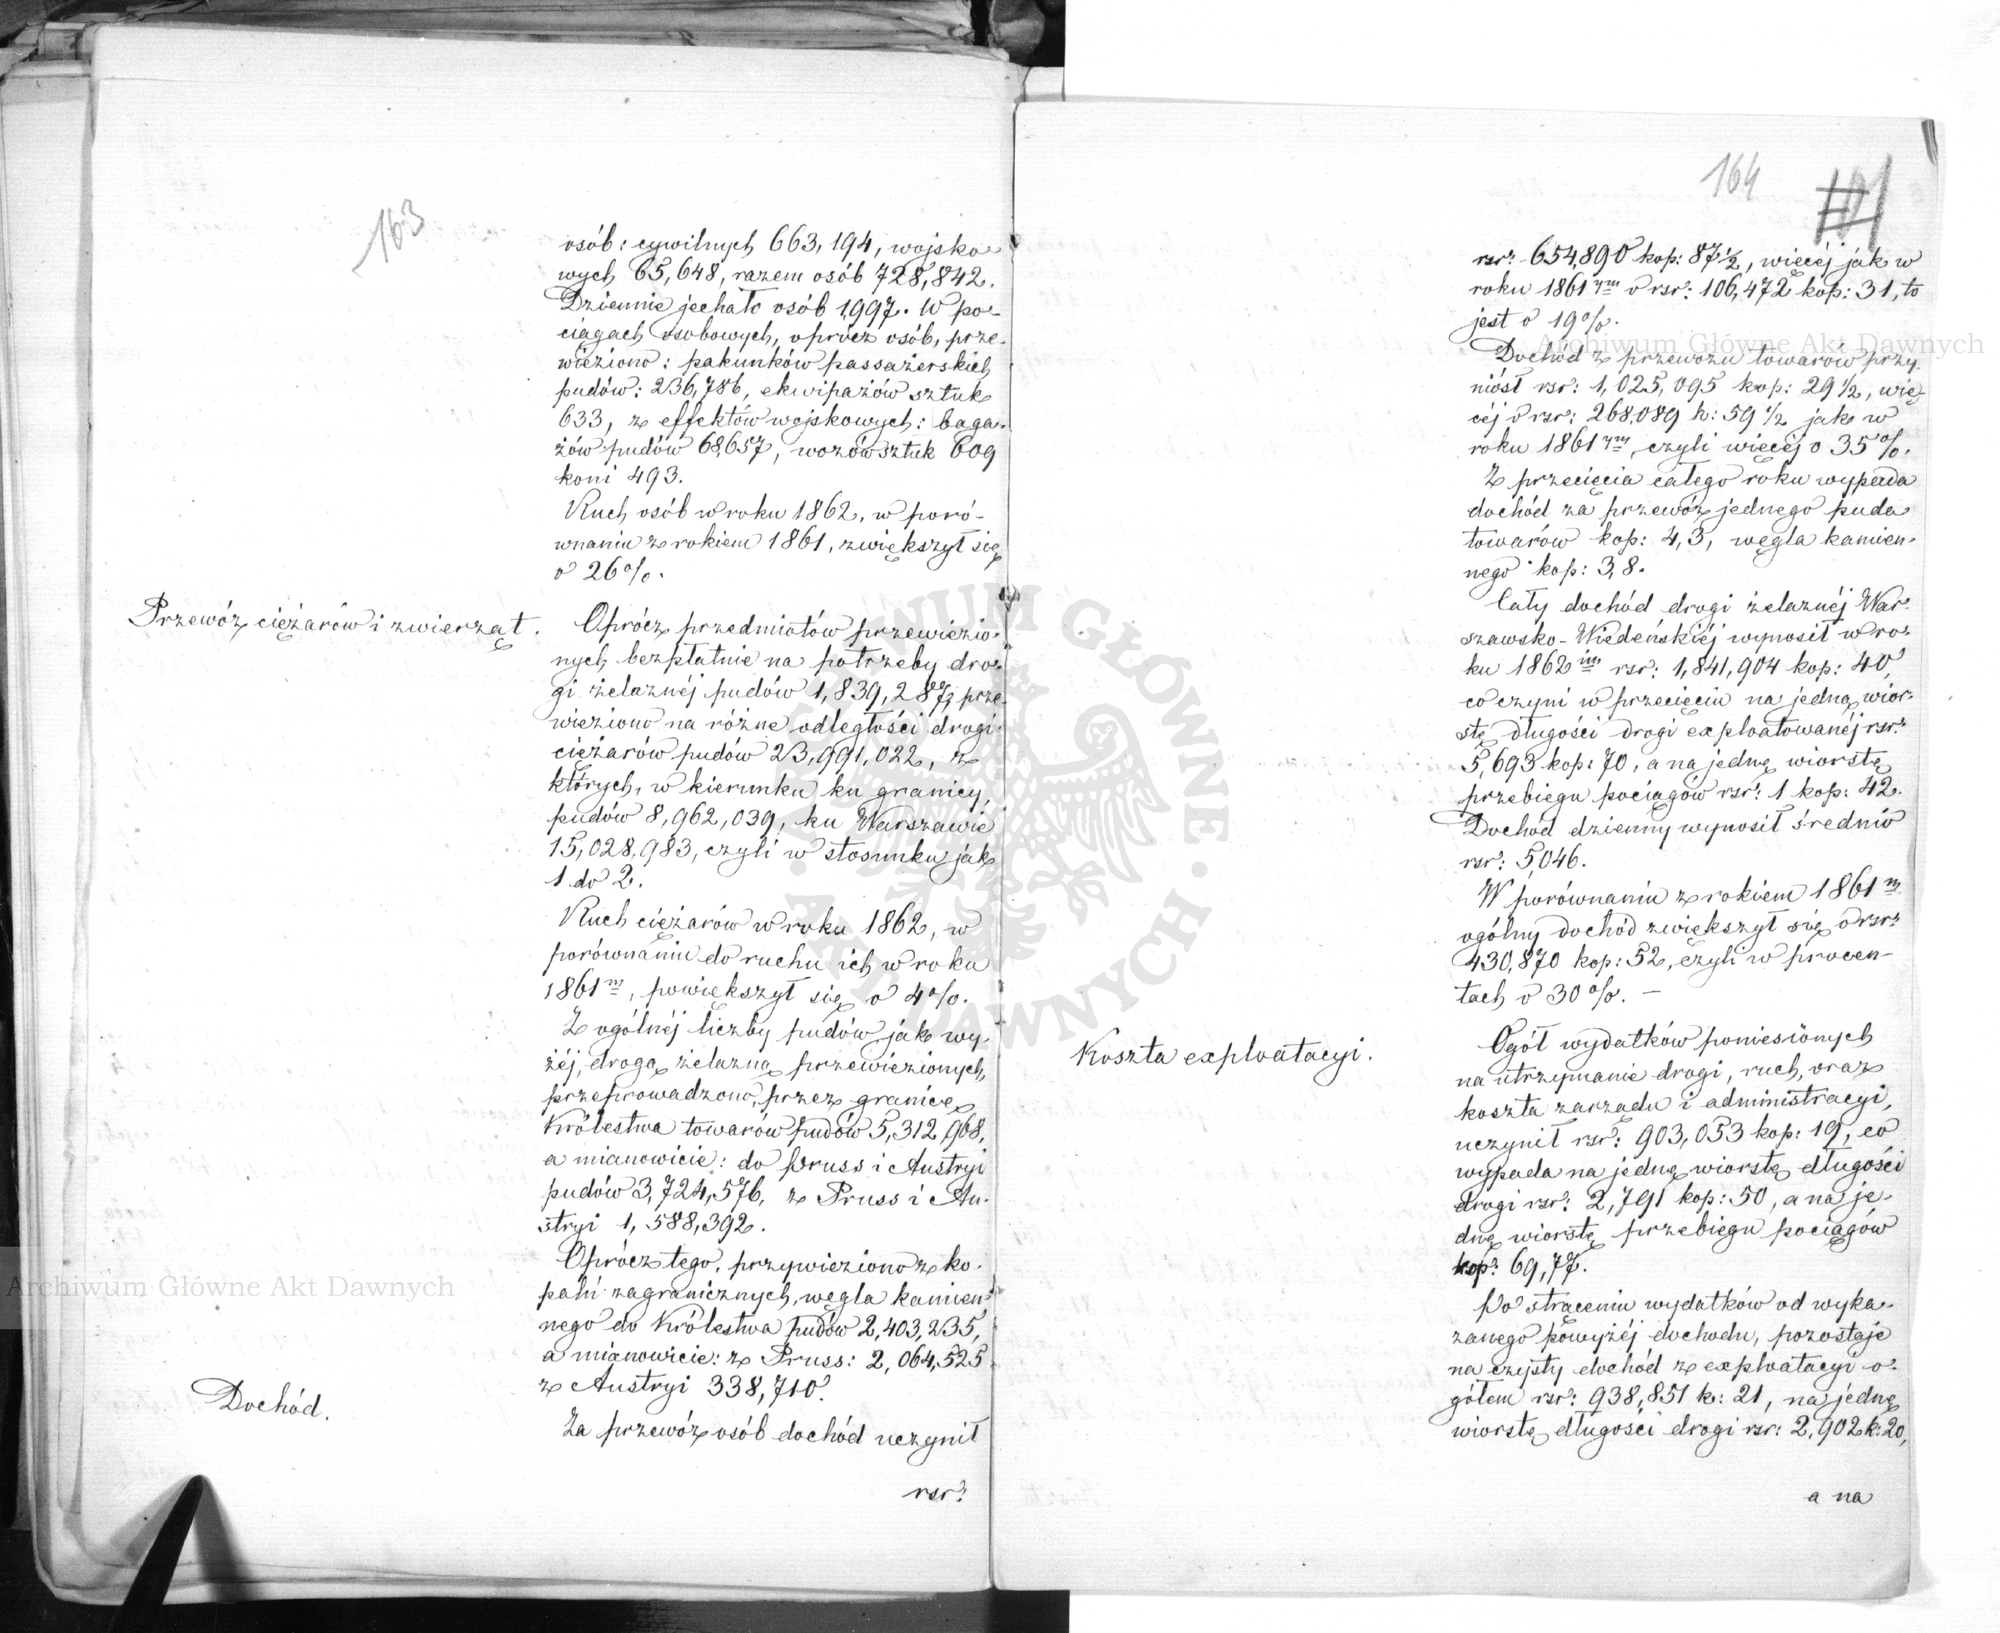 163
osób: cywilnych 663,194, wojsko-
wych 65,648, razem osób 728,842.
Dziennie jechało osób 1,997. W po-
ciągach osobowych, oprócz osób, prze-
wieziono: pakunków passażerskich
pudów: 236,786, ekwipażów sztuk
633, z effektów wojskowych: baga-
żów pudów 68,657, wozów sztuk 609
koni 493.
Ruch osób w roku 1862, w poró-
wnaniu z rokiem 1861, zwiększył się
o 26%.
Przewóz ciężarów i zwierząt.
Oprócz przedmiotów przewiezio-
nych bezpłatnie na potrzeby dro-
gi żelaznéj pudów 1,839,287, prze-
wieziono na różne odległości drogi
ciężarów pudów 23,991,022, z
których, w kierunku ku granicy,
pudów 8,962,039, ku Warszawie
15,028,983, czyli w stosunku jak
1 do 2.
Ruch ciężarów w roku 1862, w
porównaniu do ruchu ich w roku
1861 m, powiększył się o 4%.
Z ogólnéj liczby pudów jak wy-
żéj, drogą żelazną przewiezionych,
przeprowadzono, przez granicę
Królestwa towarów pudów 5,312,968,
a mianowicie: do Pruss i Austryi
pudów 3,724,576, z Pruss i Au-
stryi 1,588,392.
Oprócz tego, przywieziono z ko-
palń zagranicznych, węgla kamien-
nego do Królestwa pudów 2,403,235,
a mianowicie: z Pruss: 2,064,525
z Austryi 338,710.
Dochód.
Za przewóz osób dochód uczynił
rsr:
164
101
rsr: 654,890 kop: 87½, więcéj jak w
roku 1861 ym o rsr: 106,472 kop: 31, to
jest o 19%.
Dochód z przewozu towarów przy-
niósł rsr: 1,025,095 kop: 29½, wię-
céj o rsr: 268,089 k: 59½ jak w
roku 1861 ym, czyli więcéj o 35%.
Z przecięcia całego roku wypada
dochód za przewóz jednego puda
towarów kop: 4,3, węgla kamien-
nego kop: 3,8.
Cały dochód drogi żelaznéj War-
szawsko-Wiedeńskiéj wynosił w ro-
ku 1862 im rsr: 1,841,904 kop: 40,
co czyni w przecięciu na jedną wior-
stę długości drogi exploatowanéj rsr:
5,693 kop: 70, a na jednę wiorstę
przebiegu pociągów rsr: 1 kop: 42.
Dochód dzienny wynosił średnio
rsr: 5,046.
W porównaniu z rokiem 1861 m
ogólny dochód zwiększył się o rsr:
430,870 kop: 52, czyli w procen-
tach o 30%. —
Koszta exploatacyi.
Ogół wydatków poniesionych
na utrzymanie drogi, ruch, oraz
koszta zarządu i administracyi,
uczynił rsr: 903,053 kop: 19, co
wypada na jednę wiorstę długości
drogi rsr: 2,791 kop: 50, a na je-
dnę wiorstę przebiegu pociągów
kop: 69,77.
Po strąceniu wydatków od wyka-
zanego powyżéj dochodu, pozostaje
na czysty dochód z exploatacyi o-
gółem rsr: 938,851 k: 21, na jednę
wiorstę długości drogi rsr: 2,902 k: 20,
a na
Archiwum Główne Akt Dawnych
Archiwum Główne Akt Dawnych
ARCHIWUM GŁÓWNE · AKT DAWNYCH ·